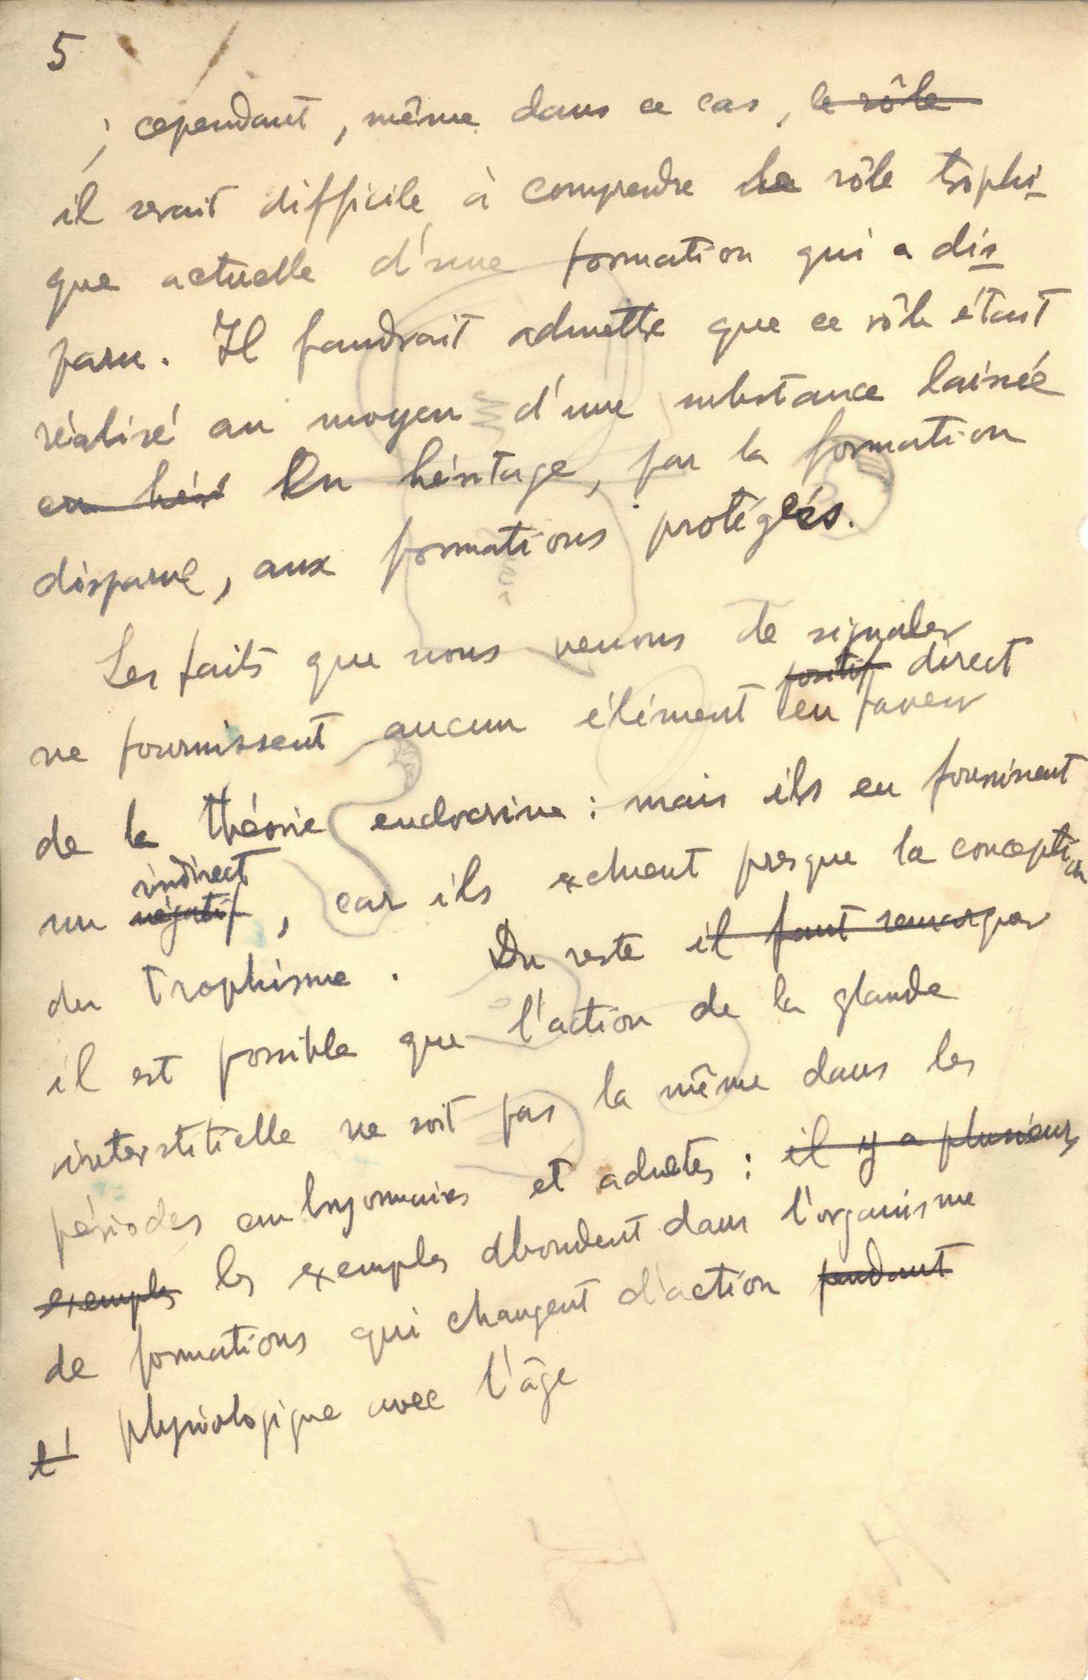 5
; cependant, même dans ce cas, le rôle
il serait difficile à comprendre le rôle trophi-
que actuelle d'une formation qui a dis-
paru. Il faudrait admettre que ce rôle étant
réalisé au moyen d'une substance laissée
en héri En héritage, par la formation
disparue, aux formations protégées.
Les faits que nous venons de signaler
positif direct
ne fournissent aucun élément en faveur
de la théorie endocrine : mais ils en fournissent
indirect
un négatif, car ils excluent presque la conception
du trophisme. Du reste il faut remarquer
il est possible que l'action de la glande
interstitielle ne soit pas la même dans les
périodes embryonnaires et adultes : il y a plusieurs
exemples les exemples abondent dans l'organisme
de formations qui changent d'action pendant
l' physiologique avec l'âge